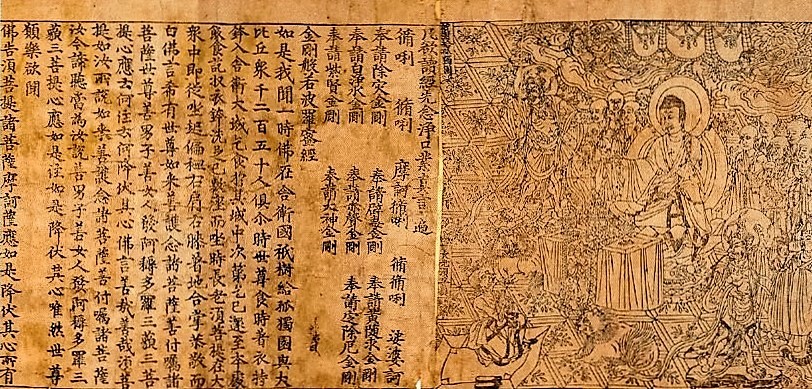 凡欲讀經先念淨口業真言一遍
脩唎 脩唎 摩訶脩唎 脩脩唎 娑婆訶
奉請除灾金剛 奉請辟毒金剛 奉請黃隨求金剛
奉請白淨水金剛 奉請赤聲金剛 奉請定除厄金剛
奉請紫賢金剛 奉請大神金剛
金剛般若波羅蜜經
如是我聞一時佛在舍衛國祇樹給孤獨園與大
比丘衆千二百五十人俱尒時世尊食時著衣持
鉢入舍衛大城乞食於其城中次第乞已還至本處
飯食訖收衣鉢洗足已敷座而坐時長老須菩提在大
衆中即從坐起偏袒右肩右膝著地合掌恭敬而
白佛言希有世尊如來善護念諸菩薩善付囑諸
菩薩世尊善男子善女人發阿耨多羅三藐三菩
提心應云何住云何降伏其心佛言善哉善哉須菩
提如汝所說如來善護念諸菩薩善付囑諸菩薩
汝今諦聽當為汝說善男子善女人發阿耨多羅三
藐三菩提心應如是住如是降伏其心唯然世尊
願樂欲聞
佛告須菩提諸菩薩摩訶薩應如是降伏其心所有